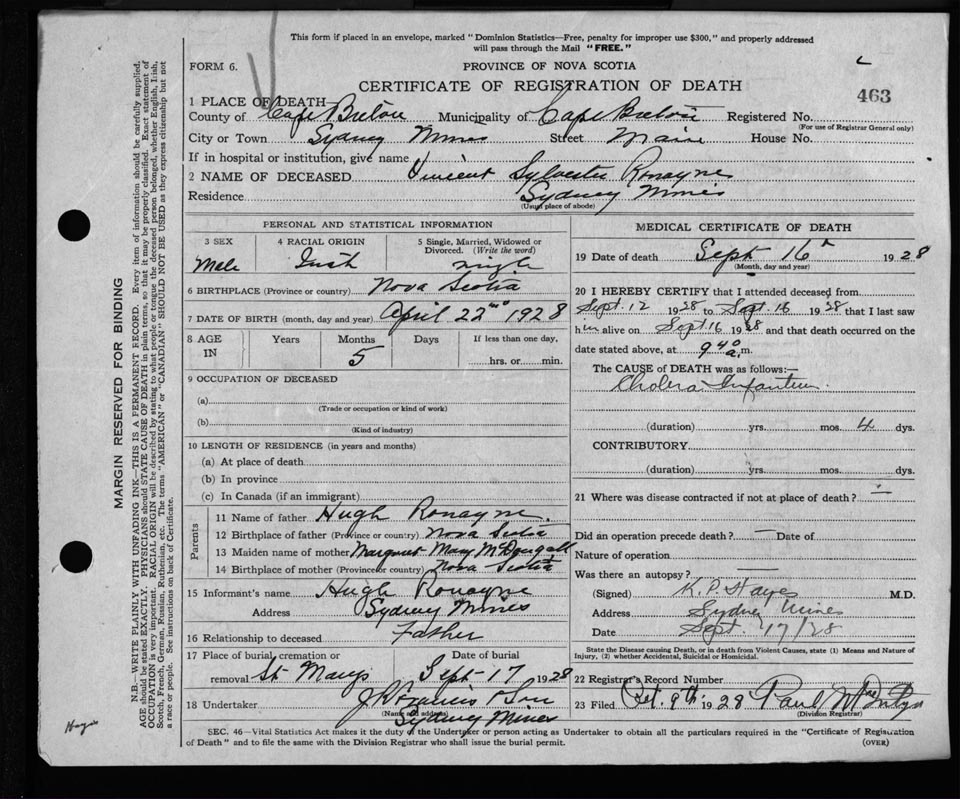 This form if placed in an envelope, marked "Dominion Statistics—Free, penalty for improper use $300," and properly addressed
will pass through the Mail "FREE."
FORM 6.
PROVINCE OF NOVA SCOTIA
CERTIFICATE OF REGISTRATION OF DEATH
463
1 PLACE OF DEATH
County of Cape Breton Municipality of Cape Breton Registered No.
(For use of Registrar General only)
City or Town Sydney Mines Street Main House No.
If in hospital or institution, give name
2 NAME OF DECEASED Vincent Sylvester Ronayne
Residence Sydney Mines
(Usual place of abode)
PERSONAL AND STATISTICAL INFORMATION
3 SEX
Male
4 RACIAL ORIGIN
Irish
5 Single, Married, Widowed or
Divorced. (Write the word)
single
6 BIRTHPLACE (Province or country) Nova Scotia
7 DATE OF BIRTH (month, day and year) April 22nd 1928
8 AGE
IN
Years
Months
5
Days
If less than one day,
hrs. or min.
9 OCCUPATION OF DECEASED
(a)
(Trade or occupation or kind of work)
(b)
(Kind of industry)
10 LENGTH OF RESIDENCE (in years and months)
(a) At place of death
(b) In province
(c) In Canada (if an immigrant)
Parents
11 Name of father Hugh Ronayne
12 Birthplace of father (Province or country) Nova Scotia
13 Maiden name of mother Margaret Mary McDougall
14 Birthplace of mother (Province or country) Nova Scotia
15 Informant's name Hugh Ronayne
Address Sydney Mines
16 Relationship to deceased Father
17 Place of burial, cremation or
removal St Marys
Date of burial
Sept-17 1928
18 Undertaker J R Francis & Son
(Name and address)
Sydney Mines
MEDICAL CERTIFICATE OF DEATH
19 Date of death Sept 16th 1928
(Month, day and year)
20 I HEREBY CERTIFY that I attended deceased from
Sept. 12 1928 to Sept. 16 1928 that I last saw
him alive on Sept 16 1928 and that death occurred on the
date stated above, at 9 40 a.m.
The CAUSE of DEATH was as follows:—
Cholera Infantum
(duration) yrs. mos. 4 dys.
CONTRIBUTORY.
(duration) yrs. mos. dys.
21 Where was disease contracted if not at place of death?
Did an operation precede death? Date of
Nature of operation
Was there an autopsy?
(Signed) K. P. Hayes M.D.
Address Sydney Mines
Date Sept. 17/28
State the Disease causing Death, or in death from Violent Causes, state (1) Means and Nature of
Injury, (2) whether Accidental, Suicidal or Homicidal.
22 Registrar's Record Number
23 Filed Oct. 9th 1928 Paul
(Division Registrar)
SEC. 46—Vital Statistics Act makes it the duty of the Undertaker or person acting as Undertaker to obtain all the particulars required in the "Certificate of Registration
of Death" and to file the same with the Division Registrar who shall issue the burial permit.
(OVER)
MARGIN RESERVED FOR BINDING
N.B.—WRITE PLAINLY WITH UNFADING INK—THIS IS A PERMANENT RECORD. Every item of information should be carefully supplied.
AGE should be stated EXACTLY. PHYSICIANS should STATE CAUSE OF DEATH in plain terms, so that it may be properly classified. Exact statement of
OCCUPATION is very important. RACIAL ORIGIN will be described by stating to what people or tongue the deceased person belonged, whether English, Irish,
Scotch, French, German, Russian, Ruthenian, etc. The terms "AMERICAN" or "CANADIAN" SHOULD NOT BE USED as they express citizenship but not
a race or people. See instructions on back of Certificate.
Hayes